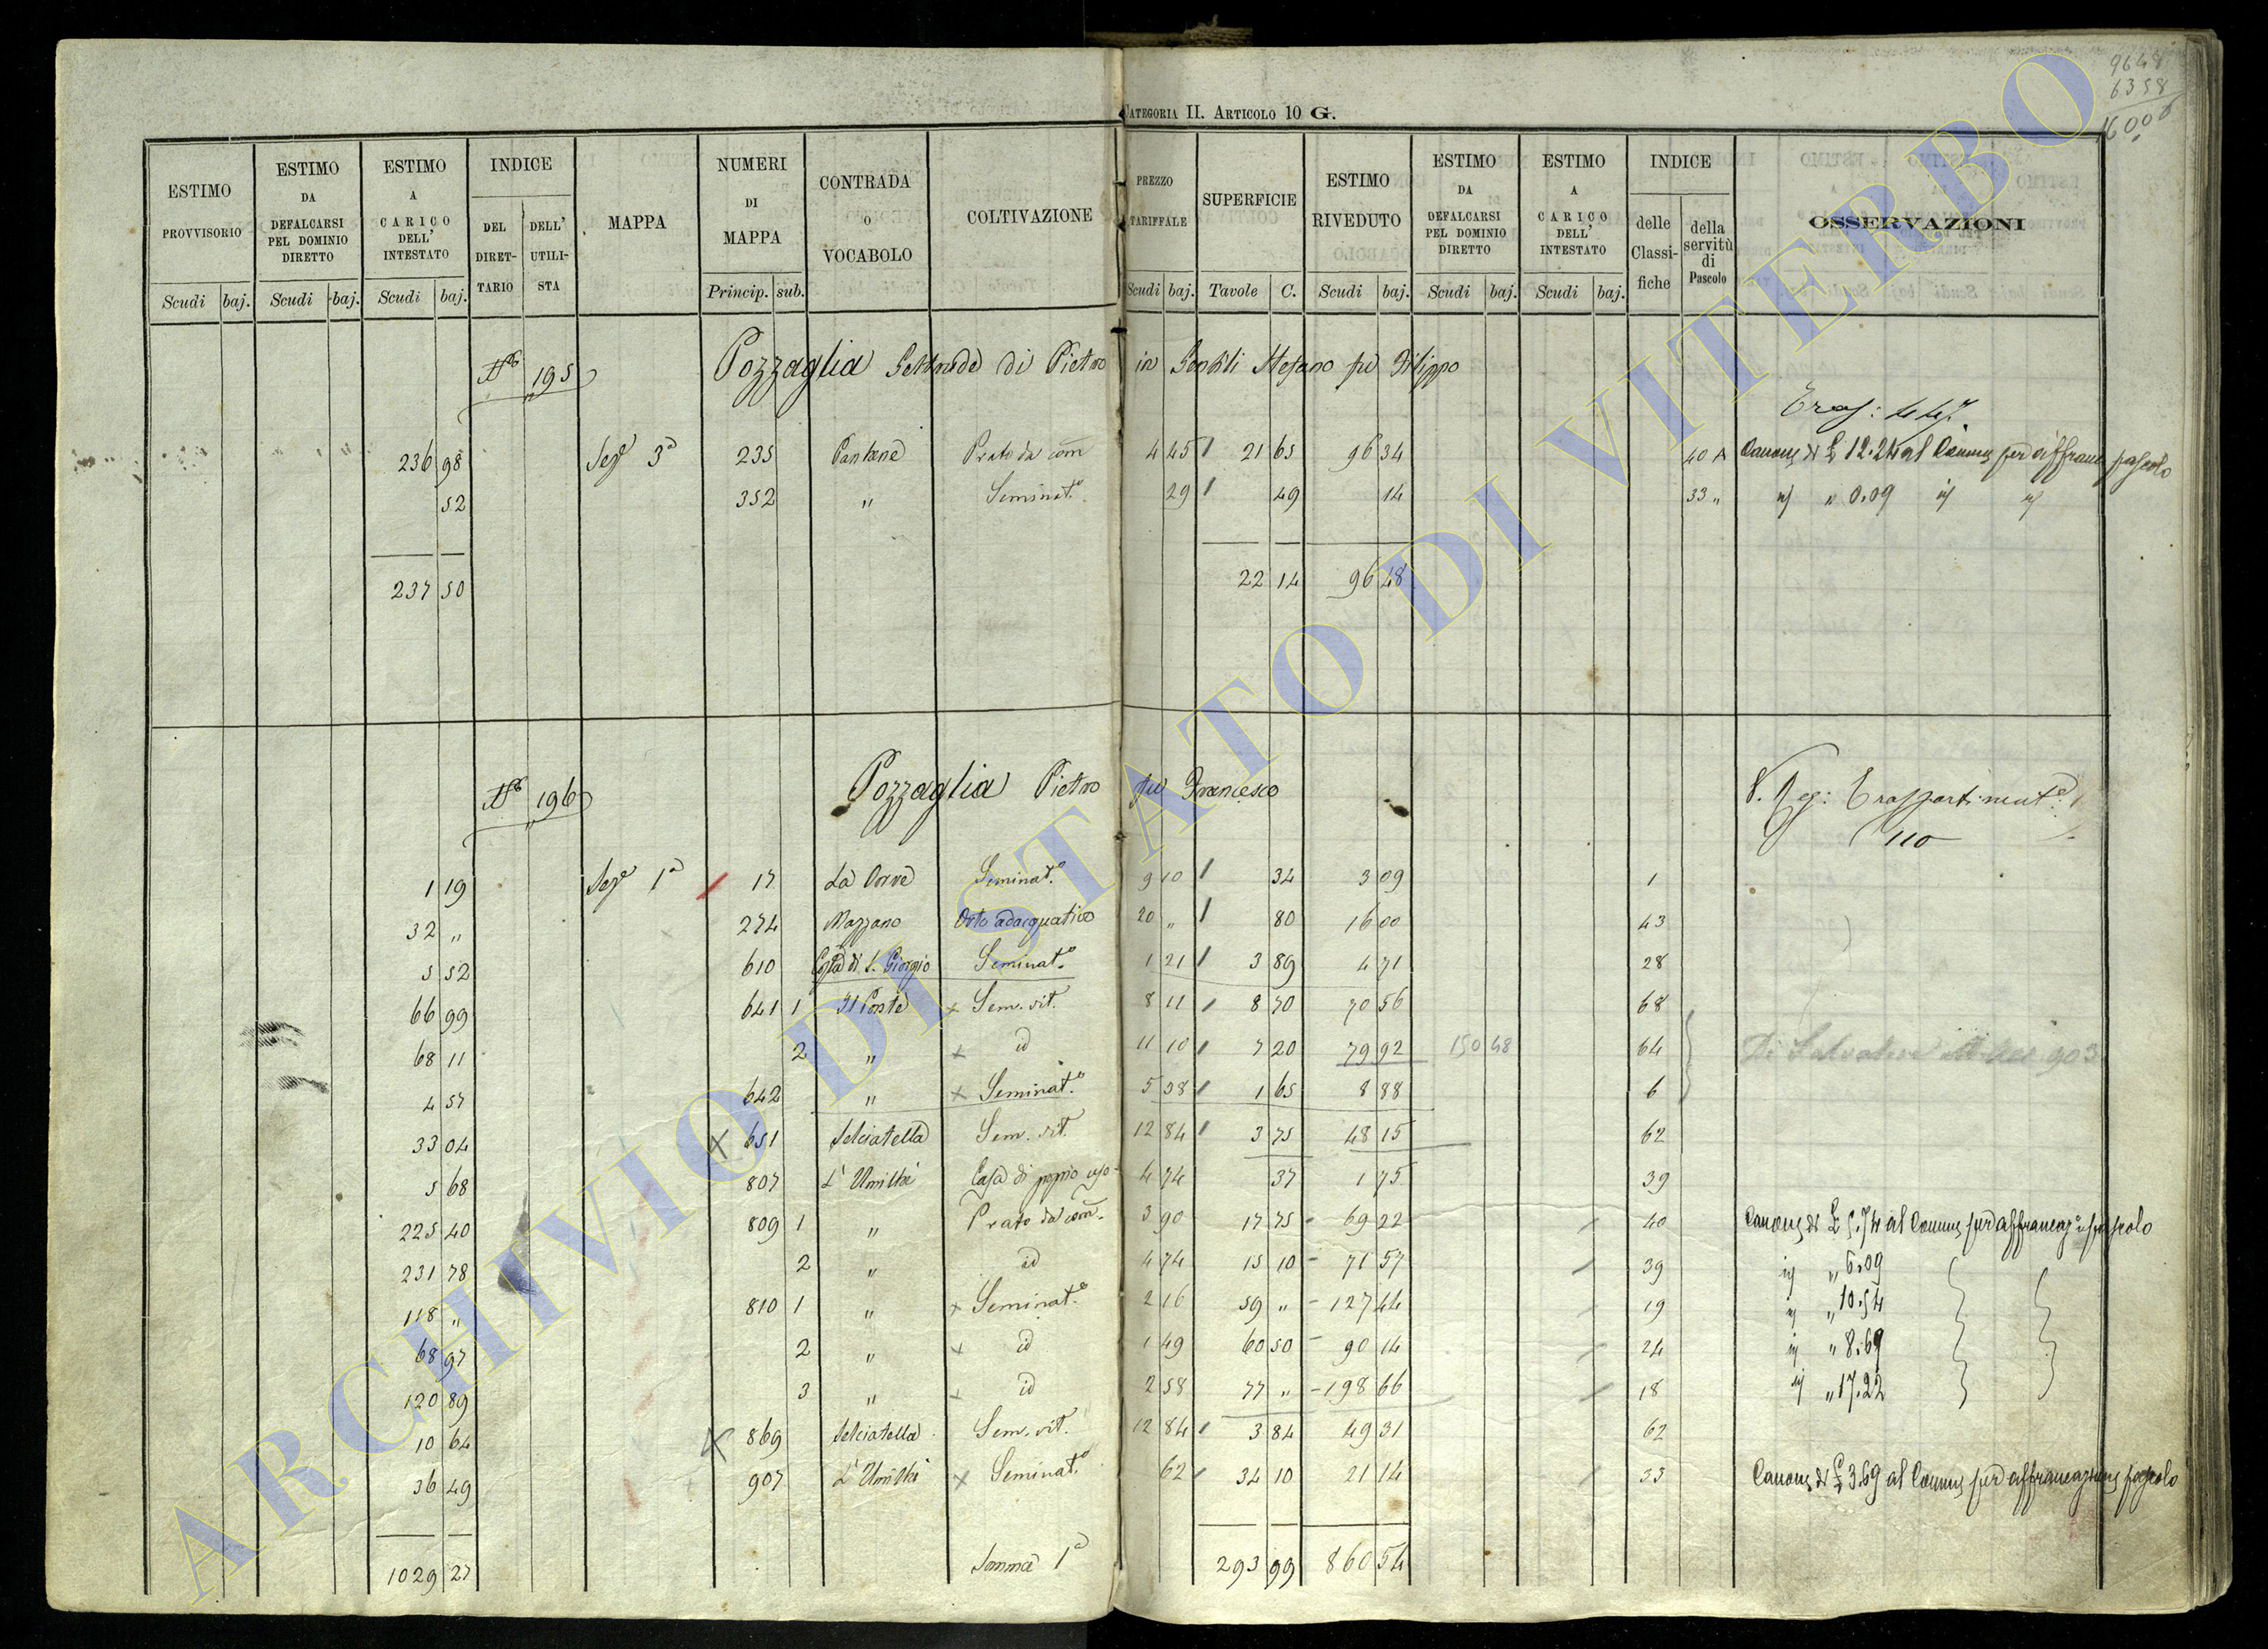 9648
6358
16000
CATEGORIA II. ARTICOLO 10 G.
ESTIMO PROVVISORIO | ESTIMO DA DEFALCARSI PEL DOMINIO DIRETTO | ESTIMO A CARICO DELL' INTESTATO | INDICE | MAPPA | NUMERI DI MAPPA | CONTRADA O VOCABOLO | COLTIVAZIONE | PREZZO TARIFFALE | SUPERFICIE | ESTIMO RIVEDUTO | ESTIMO DA DEFALCARSI PEL DOMINIO DIRETTO | ESTIMO A CARICO DELL' INTESTATO | INDICE | OSSERVAZIONI
DEL DIRETTARIO | DELL' UTILISTA | delle Classifiche | della servitù di Pascolo
Scudi baj. Scudi baj. Scudi baj. Princip. sub. Scudi baj. Tavole C. Scudi baj. Scudi baj. Scudi baj.
195 Pozzaglia di Pietro in Gentili Stefano fu Filippo
236 98 Sez^e 3^a 235 Pantane Prato da com 4 45 21 65 96 34 40 A Canone di £ 12.24 al Comune per affranc pascolo
52 352 " Seminat.o 29 49 14 33 " " 0.09
237 50 22 14 96 48
196 Pozzaglia Pietro fu Francesco
110
1 19 Sez^e 1^a 17 Seminat.o 9 10 34 3 09 1
32 " 274 Mazzano Orto adacquativo 20 " 80 16 00 43
5 52 610 Costa di S. Giorgio Seminat.o 1 21 3 89 4 71 28
66 99 641 1 Il Ponte Sem. vit. 8 11 8 70 70 56 68
68 11 2 " id 11 10 7 20 79 92 150 48 64
4 57 642 " Seminat.o 5 38 1 65 8 88 6
33 04 651 Selciatella Sem. vit. 12 84 3 75 48 15 62
5 68 807 L'Umiltà Casa di proprio uso 4 74 37 1 75 39
225 40 809 1 " Prato da com. 3 90 17 75 69 22 40 Canone di £ 5.74 al Comune per affrancaz^e pascolo
231 78 2 " id 4 74 15 10 71 57 39 " 6.09
118 " 810 1 " Seminat.o 2 16 59 " 127 44 19 " 10.54
68 97 2 " id 1 49 60 50 90 14 24 " 8.69
120 89 3 " id 2 58 77 " 198 66 18 " 17.22
10 64 869 Selciatella Sem. vit. 12 84 3 84 49 31 62
36 49 907 L'Umiltà Seminat.o 62 34 10 21 14 33 Canone di £ 3.69 al Comune per affrancazione pascolo
1029 27 Somma 1^a 293 99 860 54
ARCHIVIO DI STATO DI VITERBO